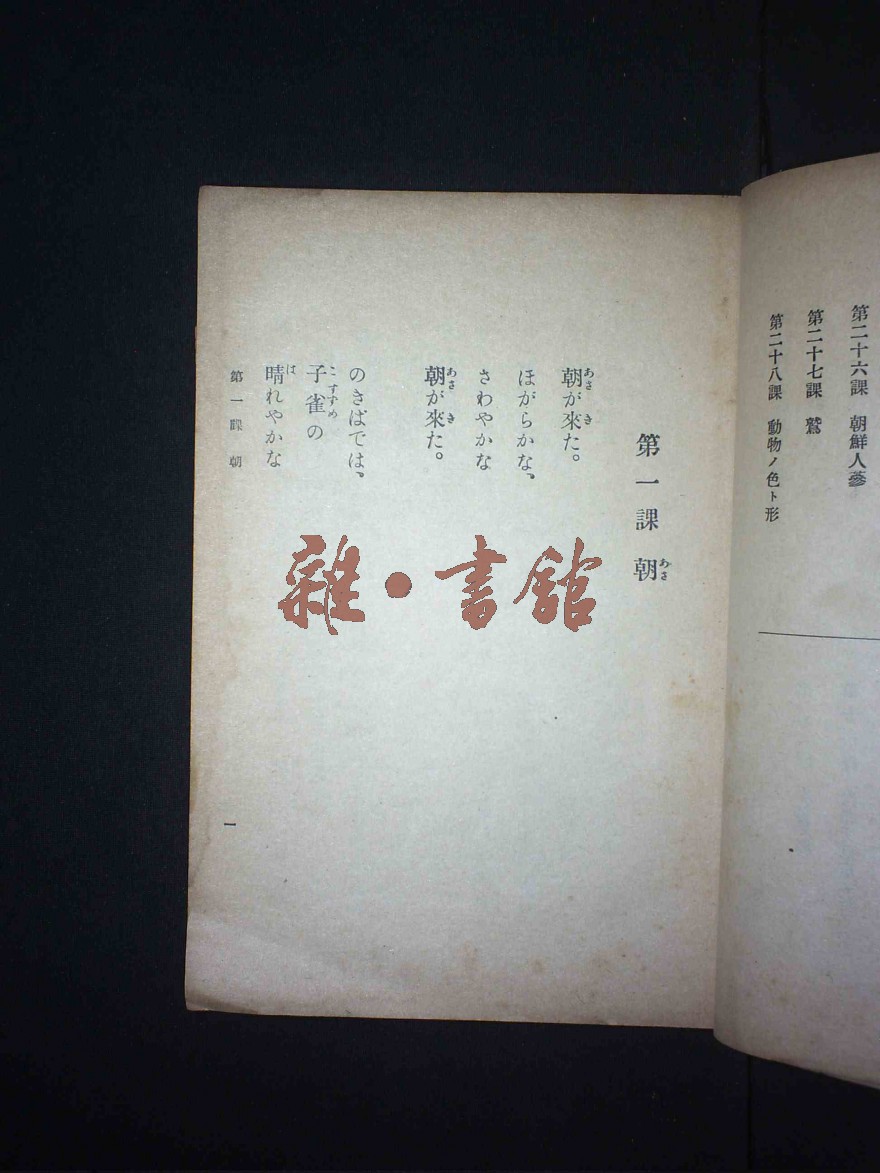 第二十六課 朝鮮人蔘
第二十七課 鷲
第二十八課 動物ノ色ト形
第一課 朝
あさ
朝が來た。
あさ き
ほがらかな、
さわやかな
朝が來た。
あさ き
のきばでは、
子雀の
こすずめ
晴れやかな
は
第一課 朝
一
雜・書館